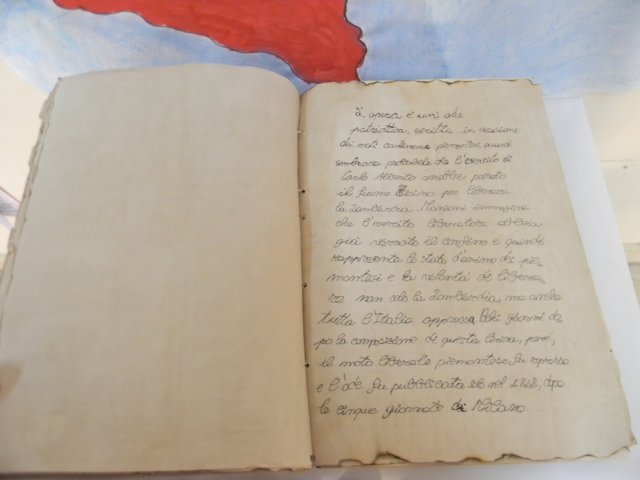 L'opera è un' ode
patriottica, scritta in occasione
dei moti carbonari piemontesi, quando
sembrava possibile che l'esercito di
Carlo Alberto avrebbe passato
il fiume Ticino per liberare
la Lombardia. Manzoni immagina
che l'esercito liberatore abbia
già varcato il confine e quindi
rappresenta lo stato d'animo dei pie-
montesi e la volontà di libera-
re non solo la Lombardia, ma anche
tutta l'Italia oppressa. Pochi giorni do
po la composizione di questa lirica, però,
il moto liberale piemontese fu represso
e l'ode fu pubblicata nel 1848, dopo
le cinque giornate di Milano.